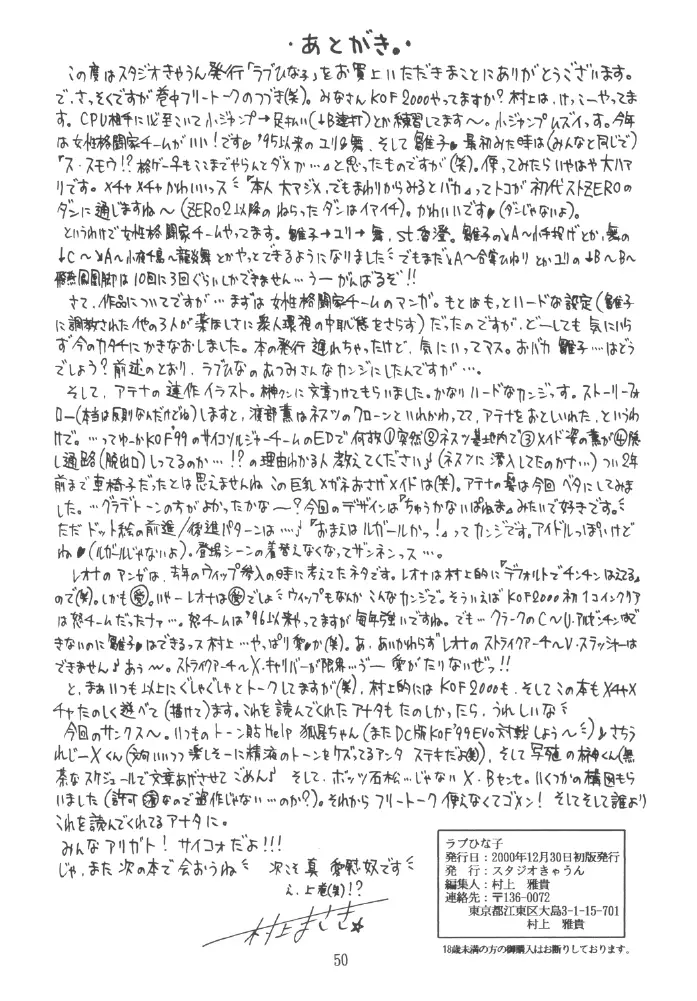 ・あとがき。・
この度はスタジオきゃうん発行「ラブひな子」をお買上いただきまことにありがとうございます。
で、さっそくですが巻中フリートークのつづき(笑)。みなさんKOF2000やってますか?村上は、けっこーやってま
す。CPU相手に 小ジャンプ→足払い(↓B連打)とか練習してます〜。小ジャンプムズイっす。今年
は女性格闘家チームがいい!です♥'95以来のユリ&舞、そして雛子♥最初みた時は(みんなと同じで)
『ス・スモウ!?格ゲーもここまでやらんとダメか…』と思ったものですが(笑)。使ってみたらいやはや大ハマ
リです。メチャメチャかわいいっス 『本人 大マジメ、でもまわりからみるとバカ』ってトコが初代ストZEROの
ダンに通じますね〜(ZERO2以降のねらったダンはイマイチ)。かわいいです♥(ダンじゃないよ)。
というわけで女性格闘家チームやってます。雛子→ユリ→舞、st.香澄。雛子の A〜 投げとか、舞の
↓C〜 A〜 〜龍炎舞とかやっとできるようになりました でもまだ A〜 とかユリの↓B〜B〜
鳳凰脚は10回に3回ぐらいしかできません…うーがんばるぞ!!
さて、作品についてですが…まずは女性格闘家チームのマンガ。もとはもっとハードな設定(雛子
に調教された他の3人が薬ほしさに衆人環視の中恥態をさらす)だったのですが、どーしても気にいら
ず今のカタチにかきなおしました。本の発行 遅れちゃったけど、気にいってマス。おバカ雛子…はどう
でしょう?前述のとおり、ラブひなのあつみさんなカンジにしたんですが…。
そして、アテナの連作イラスト。榊クンに文章つけてもらいました。かなりハードなカンジっす。ストーリーフォ
ロー(本当は反則なんだけどね)しますと、渡部薫はネスツのクローンといれかわってて、アテナをおとしいれた、というわ
けで。…ってゆーかKOF'99のサイコソルジャーチームのEDで何故①突然②ネスツ基地内で③メイド姿の薫が④脱
し通路(脱出口)しってるのか…!?の理由わかる人教えてください♪(ネスツに潜入してたのかナ…)つい2年
前まで車椅子だったとは思えませんねこの巨乳メガネおさげメイドは(笑)。アテナの髪は今回ベタにしてみま
した。…グラデトーンの方がよかったかな〜?今回のデザインは『ちゅうかないぱねま』みたいで好きです。
ただドット絵の前進/後進パターンは…♪『おまえはルガールかっ!』ってカンジです。アイドルっぽいけど
ね♥(ルガールじゃないよ)。登場シーンの着替えなくなってザンネンっス…。
レオナのマンガは、去年のウィップ参入の時に考えてたネタです。レオナは村上的に『デフォルトでチンチンはえてる』
ので(笑)。しかも 。いやーレオナは でしょ ウィップもなんかこんなカンジで。そういえばKOF2000初1コインクリア
は怒チームだったナァ…。怒チームは'96以来やってますが毎年強いですね。でも…クラークのC〜U.アルゼンチンはで
きないのに雛子♥はできるっス村上…やっぱり愛♥か(笑)。あ、あいかわらずレオナのストライクアーチ〜V・スラッシャーは
できません♪あぅ〜。ストライクアーチ〜X.キャリバーが限界…う゛ー愛がたりないぜっ!!
と、まぁいつも以上にぐしゃぐしゃとトークしてますが(笑)、村上的にはKOF2000も、そしてこの本もメチャメ
チャたのしく遊べて(描けて)ます。これを読んでくれたアナタもたのしかったら、うれしいな
今回のサンクス〜。いつものトーン貼Help 狐 ちゃん(またDC版KOF'99Evo対戦しよう〜 )♪さちう
れじーXくん(文句いいつつ楽しそーに精液のトーンをケズってるアンタ ステキだよ(笑))、そして写植の榊くん(無
茶なスケジュールで文章あげさせてごめん♪ そして、ボッツ石松…じゃないX・Bセンセ。いくつかの構図もら
いました(許可済なので盗作じゃない…のか?)。それからフリートーク使えなくてゴメン!そしてそして誰より
これを読んでくれてるアナタに。
みんなアリガト!サイコォだよ!!!
じゃ、また次の本で会おうね 次こそ真 愛慰奴です
え、上巻(笑)!?
村上まさき☆
ラブひな子
発行日:2000年12月30日初版発行
発 行:スタジオきゃうん
編集人:村上 雅貴
連絡先:〒136-0072
東京都江東区大島3-1-15-701
村上 雅貴
18歳未満の方の御購入はお断りしております。
50